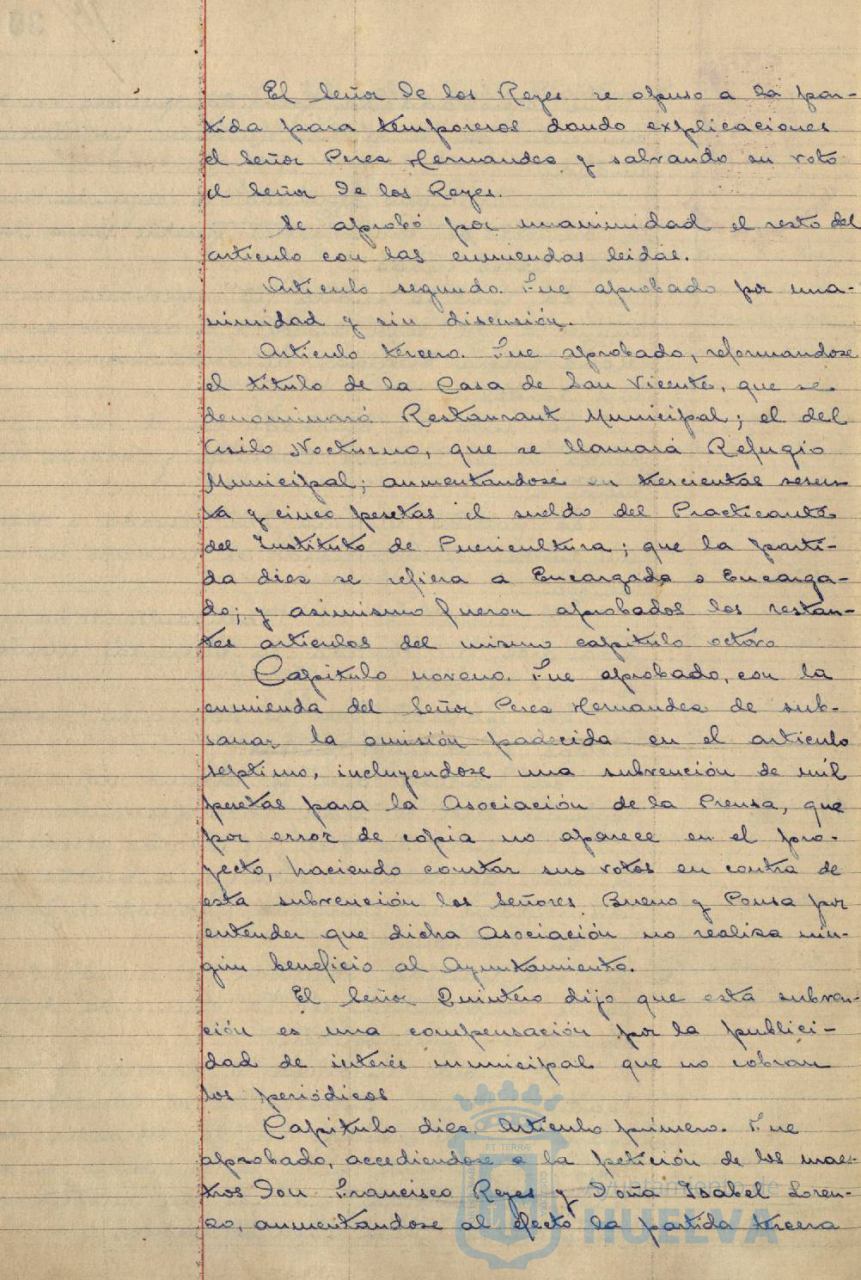 El Señor De los Reyes se opuso a la par-
tida para temporeros dando explicaciones
el Señor Perez Hernandez y salvando su voto
el Señor De los Reyes.
Se aprobó por unanimidad el resto del
artículo con las enmiendas leidas.
Artículo segundo. Fue aprobado por una-
nimidad y sin discusión.
Artículo tercero. Fue aprobado, reformandose
el título de la Casa de San Vicente, que se
denominará Restaurant Municipal; el del
Asilo Nocturno, que se llamará Refugio
Municipal; aumentandose en trescientas sesen-
ta y cinco pesetas el sueldo del Practicante
del Instituto de Puericultura; que la parti-
da diez se refiera a Encargada o Encarga-
do; y asimismo fueron aprobados los restan-
tes artículos del mismo capítulo octavo
Capítulo noveno. Fue aprobado, con la
enmienda del Señor Perez Hernandez de sub-
sanar la omisión padecida en el artículo
septimo, incluyendose una subvención de mil
pesetas para la Asociación de la Prensa, que
por error de copia no aparece en el pro-
yecto, haciendo constar sus votos en contra de
esta subvención los Señores Bueno y Ponsa por
entender que dicha Asociación no realiza nin-
gun beneficio al Ayuntamiento.
El Señor Quintero dijo que esta subven-
ción es una compensación por la publici-
dad de interés municipal que no cobran
los periódicos
Capítulo diez. Artículo primero. Fue
aprobado, accediendose a la petición de los maes-
tros Don Francisco Reyes y Doña Isabel Loren-
zo, aumentandose al efecto la partida tercera
Ayuntamiento de
HUELVA